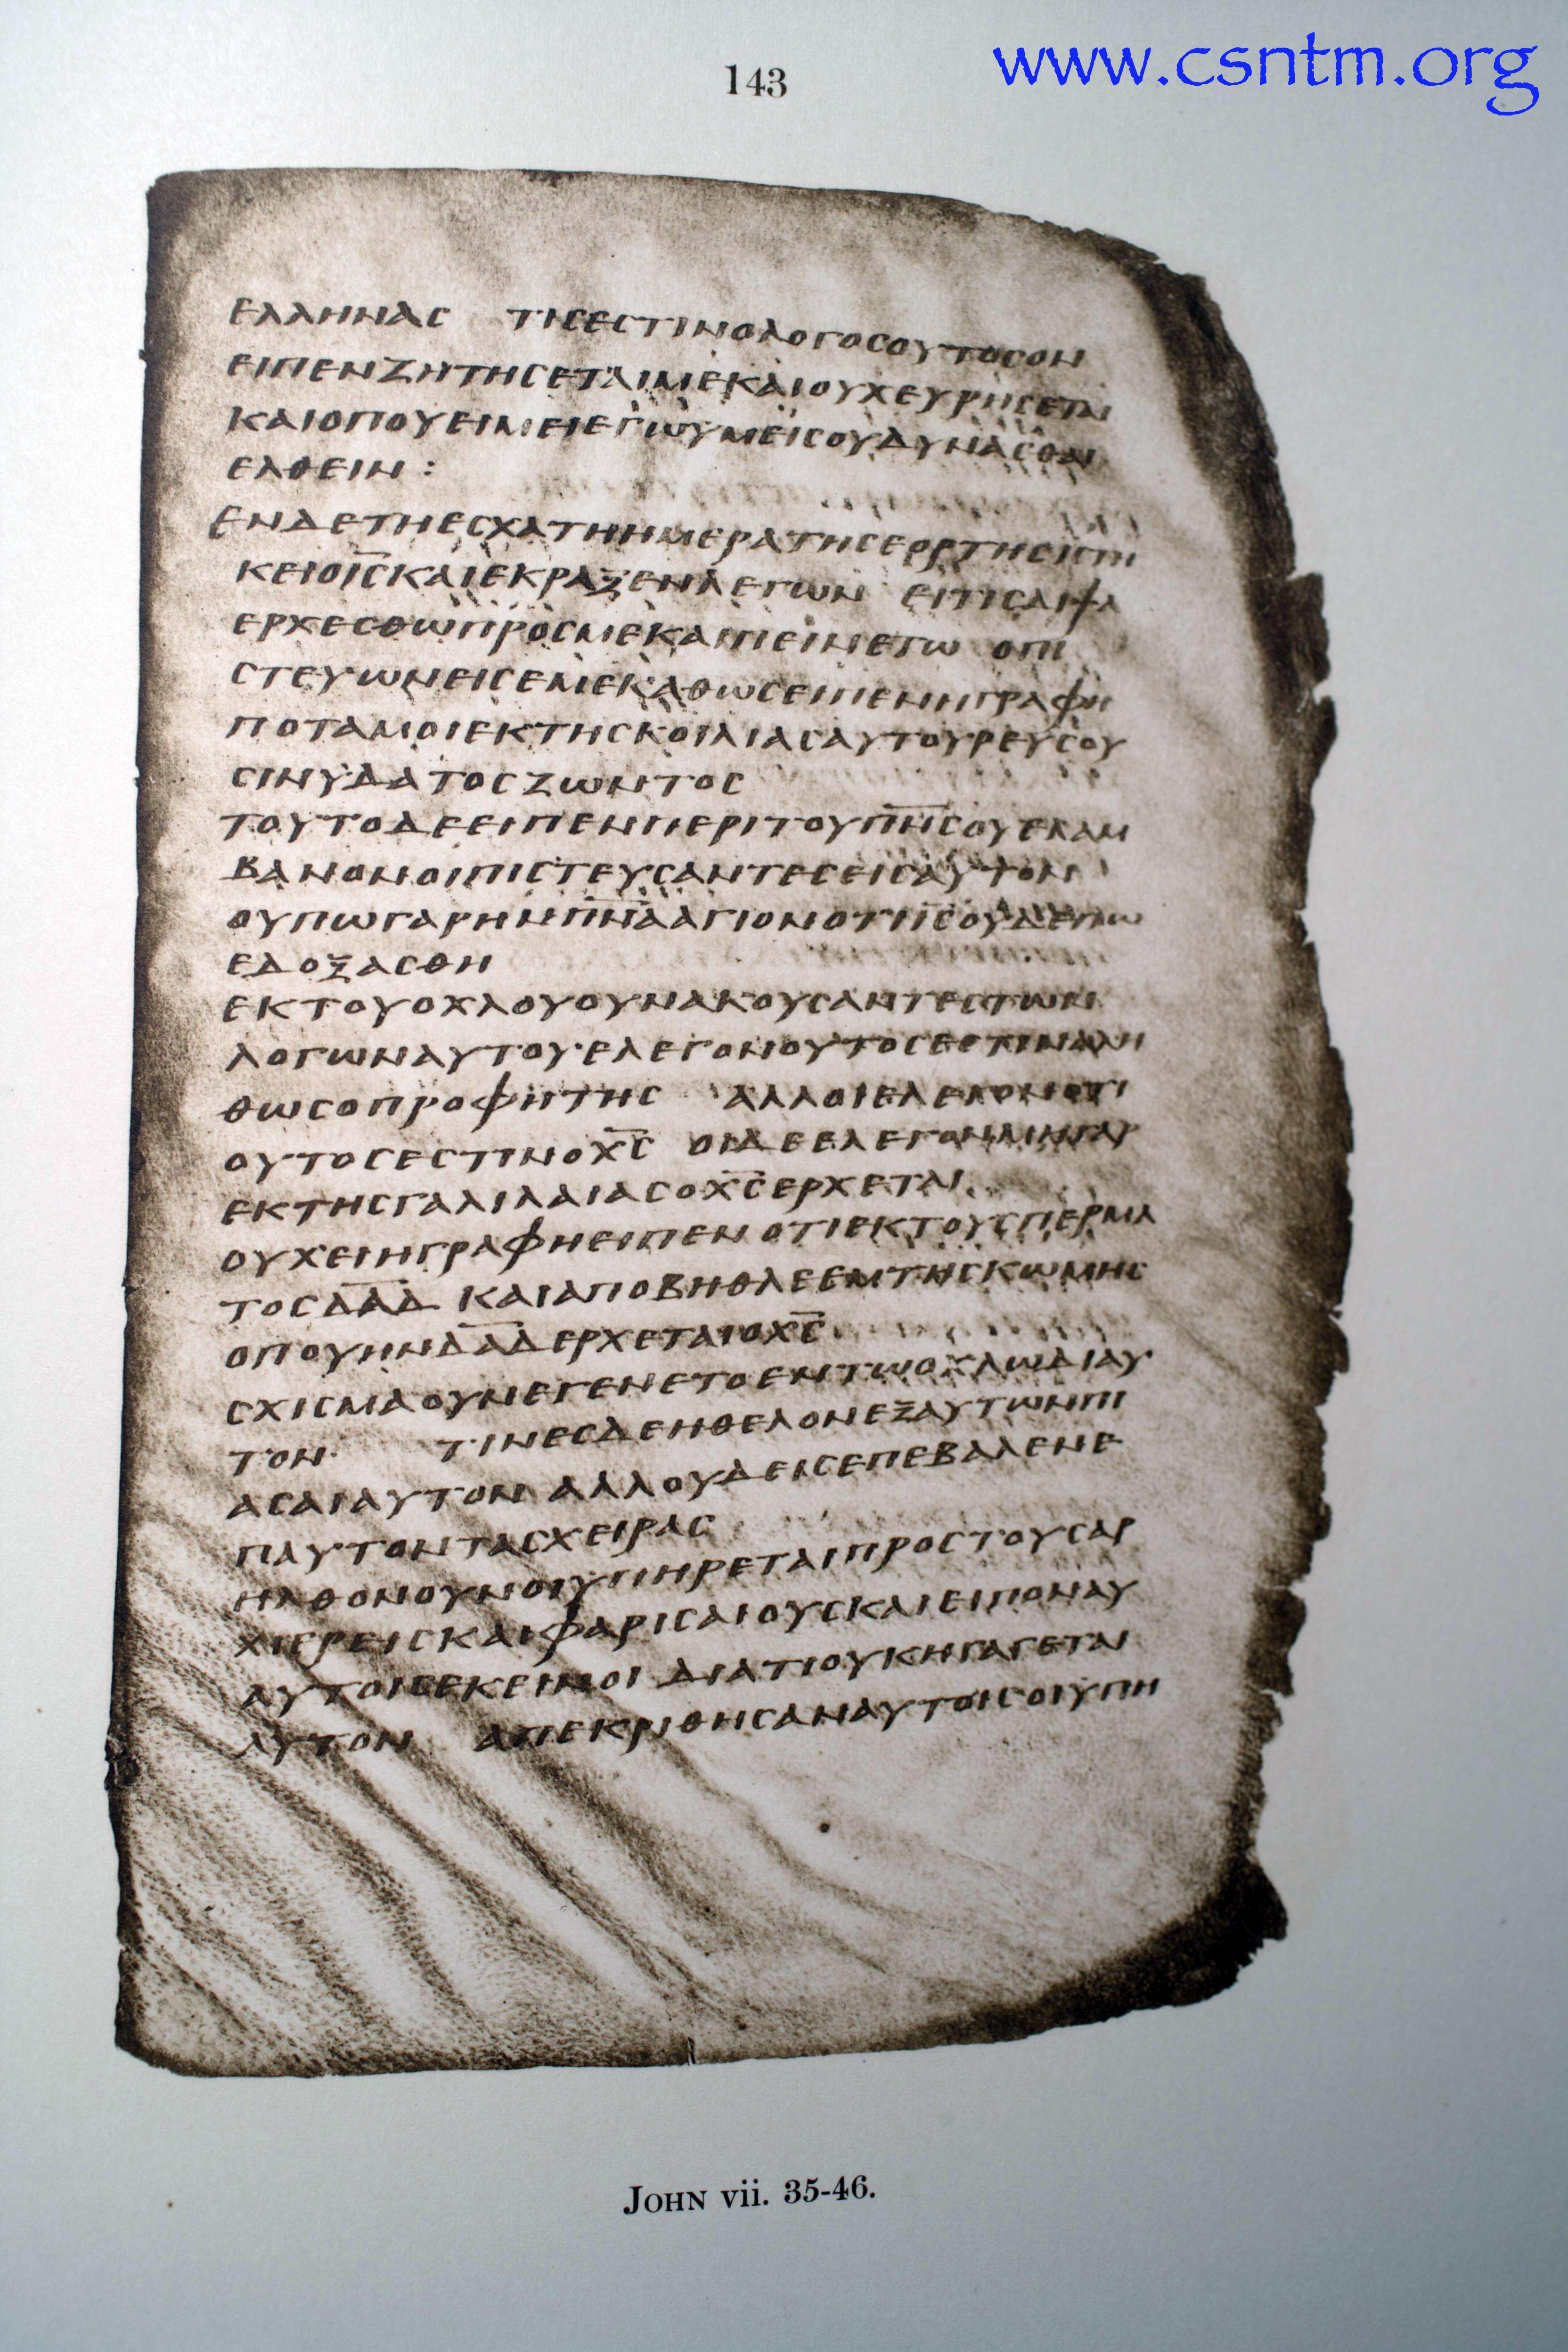 143
www.csntm.org
ΕΛΛΗΝΑϹ ΤΙϹΕϹΤΙΝΟΛΟΓΟϹΟΥΤΟϹΟΝ
ΕΙΠΕΝΖΗΤΗϹΕΤΑΙΜΕΚΑΙΟΥΧΕΥΡΗϹΕΤΑΙ
ΚΑΙΟΠΟΥΕΙΜΕΙΕΓΩΫΜΕΙϹΟΥΔΥΝΑϹΘΑΙ
ΕΛΘΕΙΝ :
ΕΝΔΕΤΗΕϹΧΑΤΗΗΜΕΡΑΤΗϹΕΟΡΤΗϹΙϹΤΗ
ΚΕΙΟΙ̅Ϲ̅ΚΑΙΕΚΡΑΖΕΝΛΕΓΩΝ ΕΙΤΙϹΔΙΨΑ
ΕΡΧΕϹΘΩΠΡΟϹΜΕΚΑΙΠΕΙΝΕΤΩ ΟΠΙ
ϹΤΕΥΩΝΕΙϹΕΜΕΚΑΘΩϹΕΙΠΕΝΗΓΡΑΦΗ
ΠΟΤΑΜΟΙΕΚΤΗϹΚΟΙΛΙΑϹΑΥΤΟΥΡΕΥϹΟΥ
ϹΙΝΥΔΑΤΟϹΖΩΝΤΟϹ
ΤΟΥΤΟΔΕΕΙΠΕΝΠΕΡΙΤΟΥΠ̅Ν̅Ϲ̅ΟΥΕΛΑΜ
ΒΑΝΟΝΟΙΠΙϹΤΕΥϹΑΝΤΕϹΕΙϹΑΥΤΟΝ
ΟΥΠΩΓΑΡΗΝΠ̅Ν̅Α̅ΑΓΙΟΝΟΤΙΙ̅Ϲ̅ΟΥΔΕΠΩ
ΕΔΟΞΑϹΘΗ
ΕΚΤΟΥΟΧΛΟΥΟΥΝΑΚΟΥϹΑΝΤΕϹΤΩΝ
ΛΟΓΩΝΑΥΤΟΥ·ΕΛΕΓΟΝΟΥΤΟϹΕϹΤΙΝΑΛΗ
ΘΩϹΟΠΡΟΦΗΤΗϹ ΑΛΛΟΙΕΛΕΓΟΝΟΤΙ
ΟΥΤΟϹΕϹΤΙΝΟΧ̅Ϲ̅ ΟΙΔΕΕΛΕΓΟΝΜΗΓΑΡ
ΕΚΤΗϹΓΑΛΙΛΑΙΑϹΟΧ̅Ϲ̅ΕΡΧΕΤΑΙ
ΟΥΧΕΙΗΓΡΑΦΗΕΙΠΕΝΟΤΙΕΚΤΟΥϹΠΕΡΜΑ
ΤΟϹΔ̅Α̅Δ̅ ΚΑΙΑΠΟΒΗΘΛΕΕΜΤΗϹΚΩΜΗϹ
ΟΠΟΥΗΝΔ̅Α̅Δ̅ΕΡΧΕΤΑΙΟΧ̅Ϲ̅
ϹΧΙϹΜΑΟΥΝΕΓΕΝΕΤΟΕΝΤΩΟΧΛΩΔΙΑΥ
ΤΟΝ· ΤΙΝΕϹΔΕΗΘΕΛΟΝΕΞΑΥΤΩΝΠΙ
ΑϹΑΙΑΥΤΟΝ ΑΛΛΟΥΔΕΙϹΕΠΕΒΑΛΕΝΕ
ΠΑΥΤΟΝΤΑϹΧΕΙΡΑϹ
ΗΛΘΟΝΟΥΝΟΙΥΠΗΡΕΤΑΙΠΡΟϹΤΟΥϹΑΡ
ΧΙΕΡΕΙϹΚΑΙΦΑΡΙϹΑΙΟΥϹΚΑΙΕΙΠΟΝΑΥ
ΑΥΤΟΙϹΕΚΕΙΝΟΙ ΔΙΑΤΙΟΥΚΗΓΑΓΕΤΑΙ
ΑΥΤΟΝ ΑΠΕΚΡΙΘΗϹΑΝΑΥΤΟΙϹΟΙΫΠΗ
JOHN vii. 35-46.